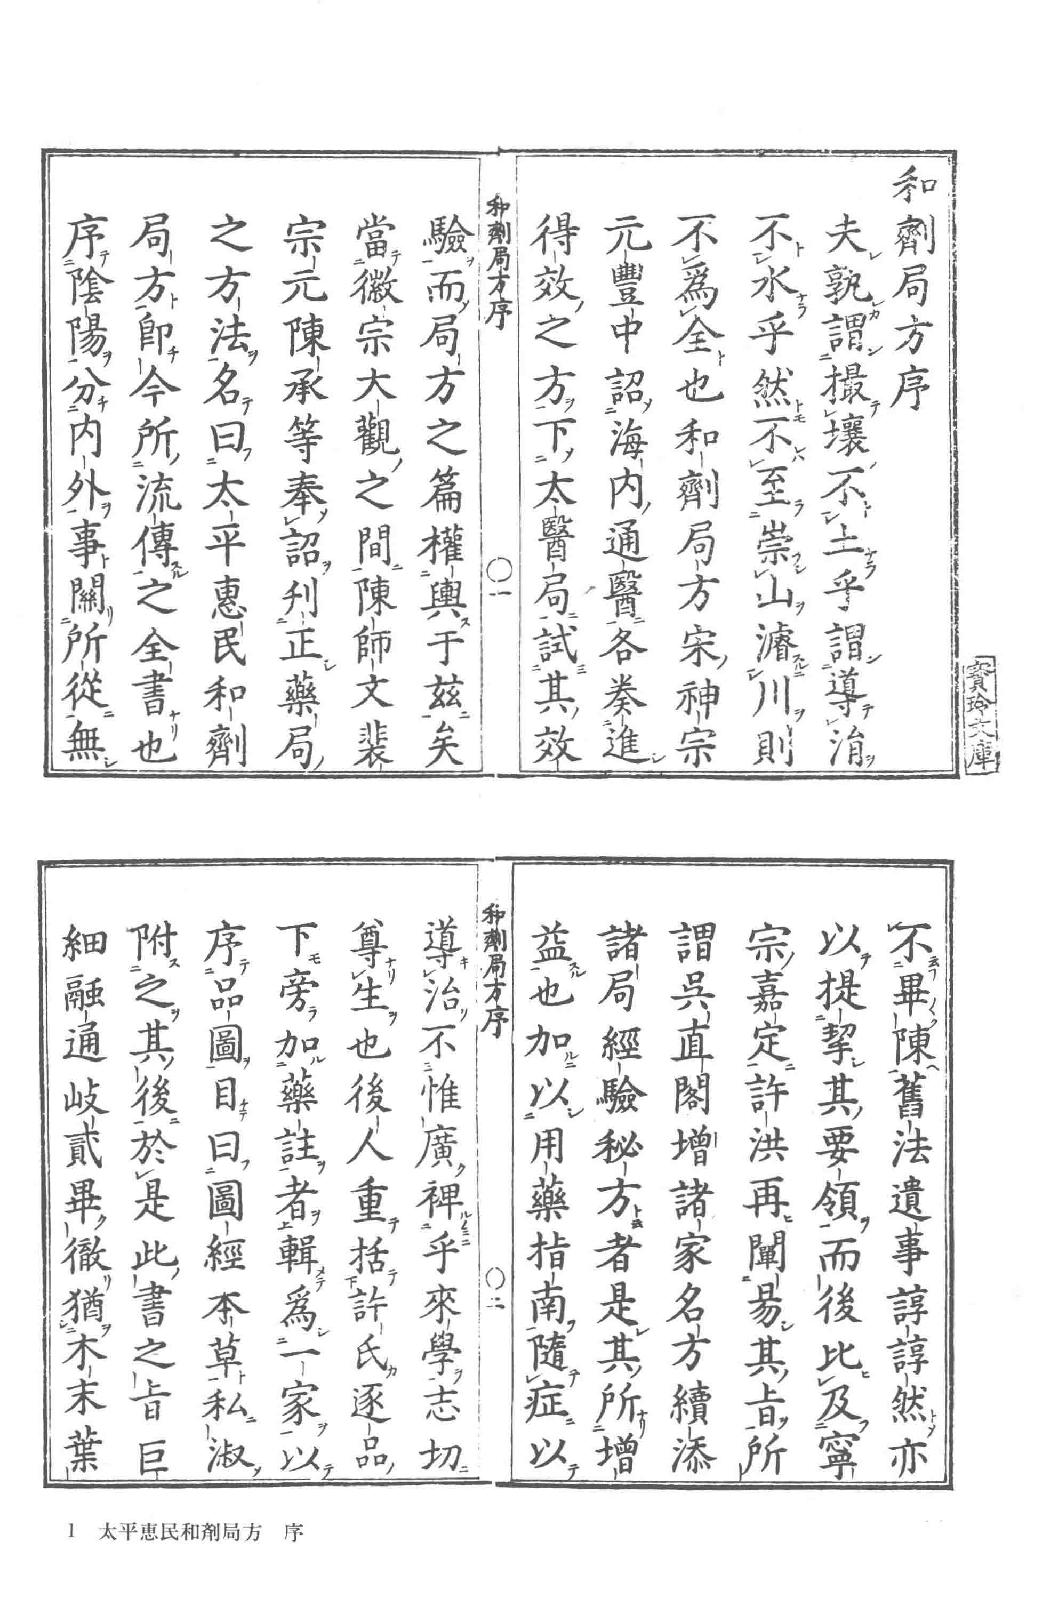 和劑局方序
夫孰謂撮壤不土乎謂導涓
不水乎然不至崇山濬川則
不爲全也和劑局方宋神宗
元豐中詔海内通醫各奏進
得效之方下太醫局試其效
和劑局方序
〇一
驗而局方之篇權輿于兹矣
當徽宗大觀之間陳師文裴
宗元陳承等奉詔刋正藥局
之方法名曰太平惠民和劑
局方即今所流傳之全書也
序陰陽分内外事關所從無
寶玲文庫
不畢陳舊法遺事諄諄然亦
以提挈其要領而後比及寧
宗嘉定許洪再闡昜其旨所
謂吳直閣增諸家名方續添
諸局經驗秘方者是其所增
益也加以用藥指南隨症以
和劑局方序
〇二
導治不惟廣裨乎來學志切
尊生也後人重括許氏逐品
下旁加藥註者輯爲一家以
序品圖目曰圖經本草私淑
附之其後於是此書之旨巨
細融通岐貳畢徹猶木末葉
1 太平恵民和剤局方 序